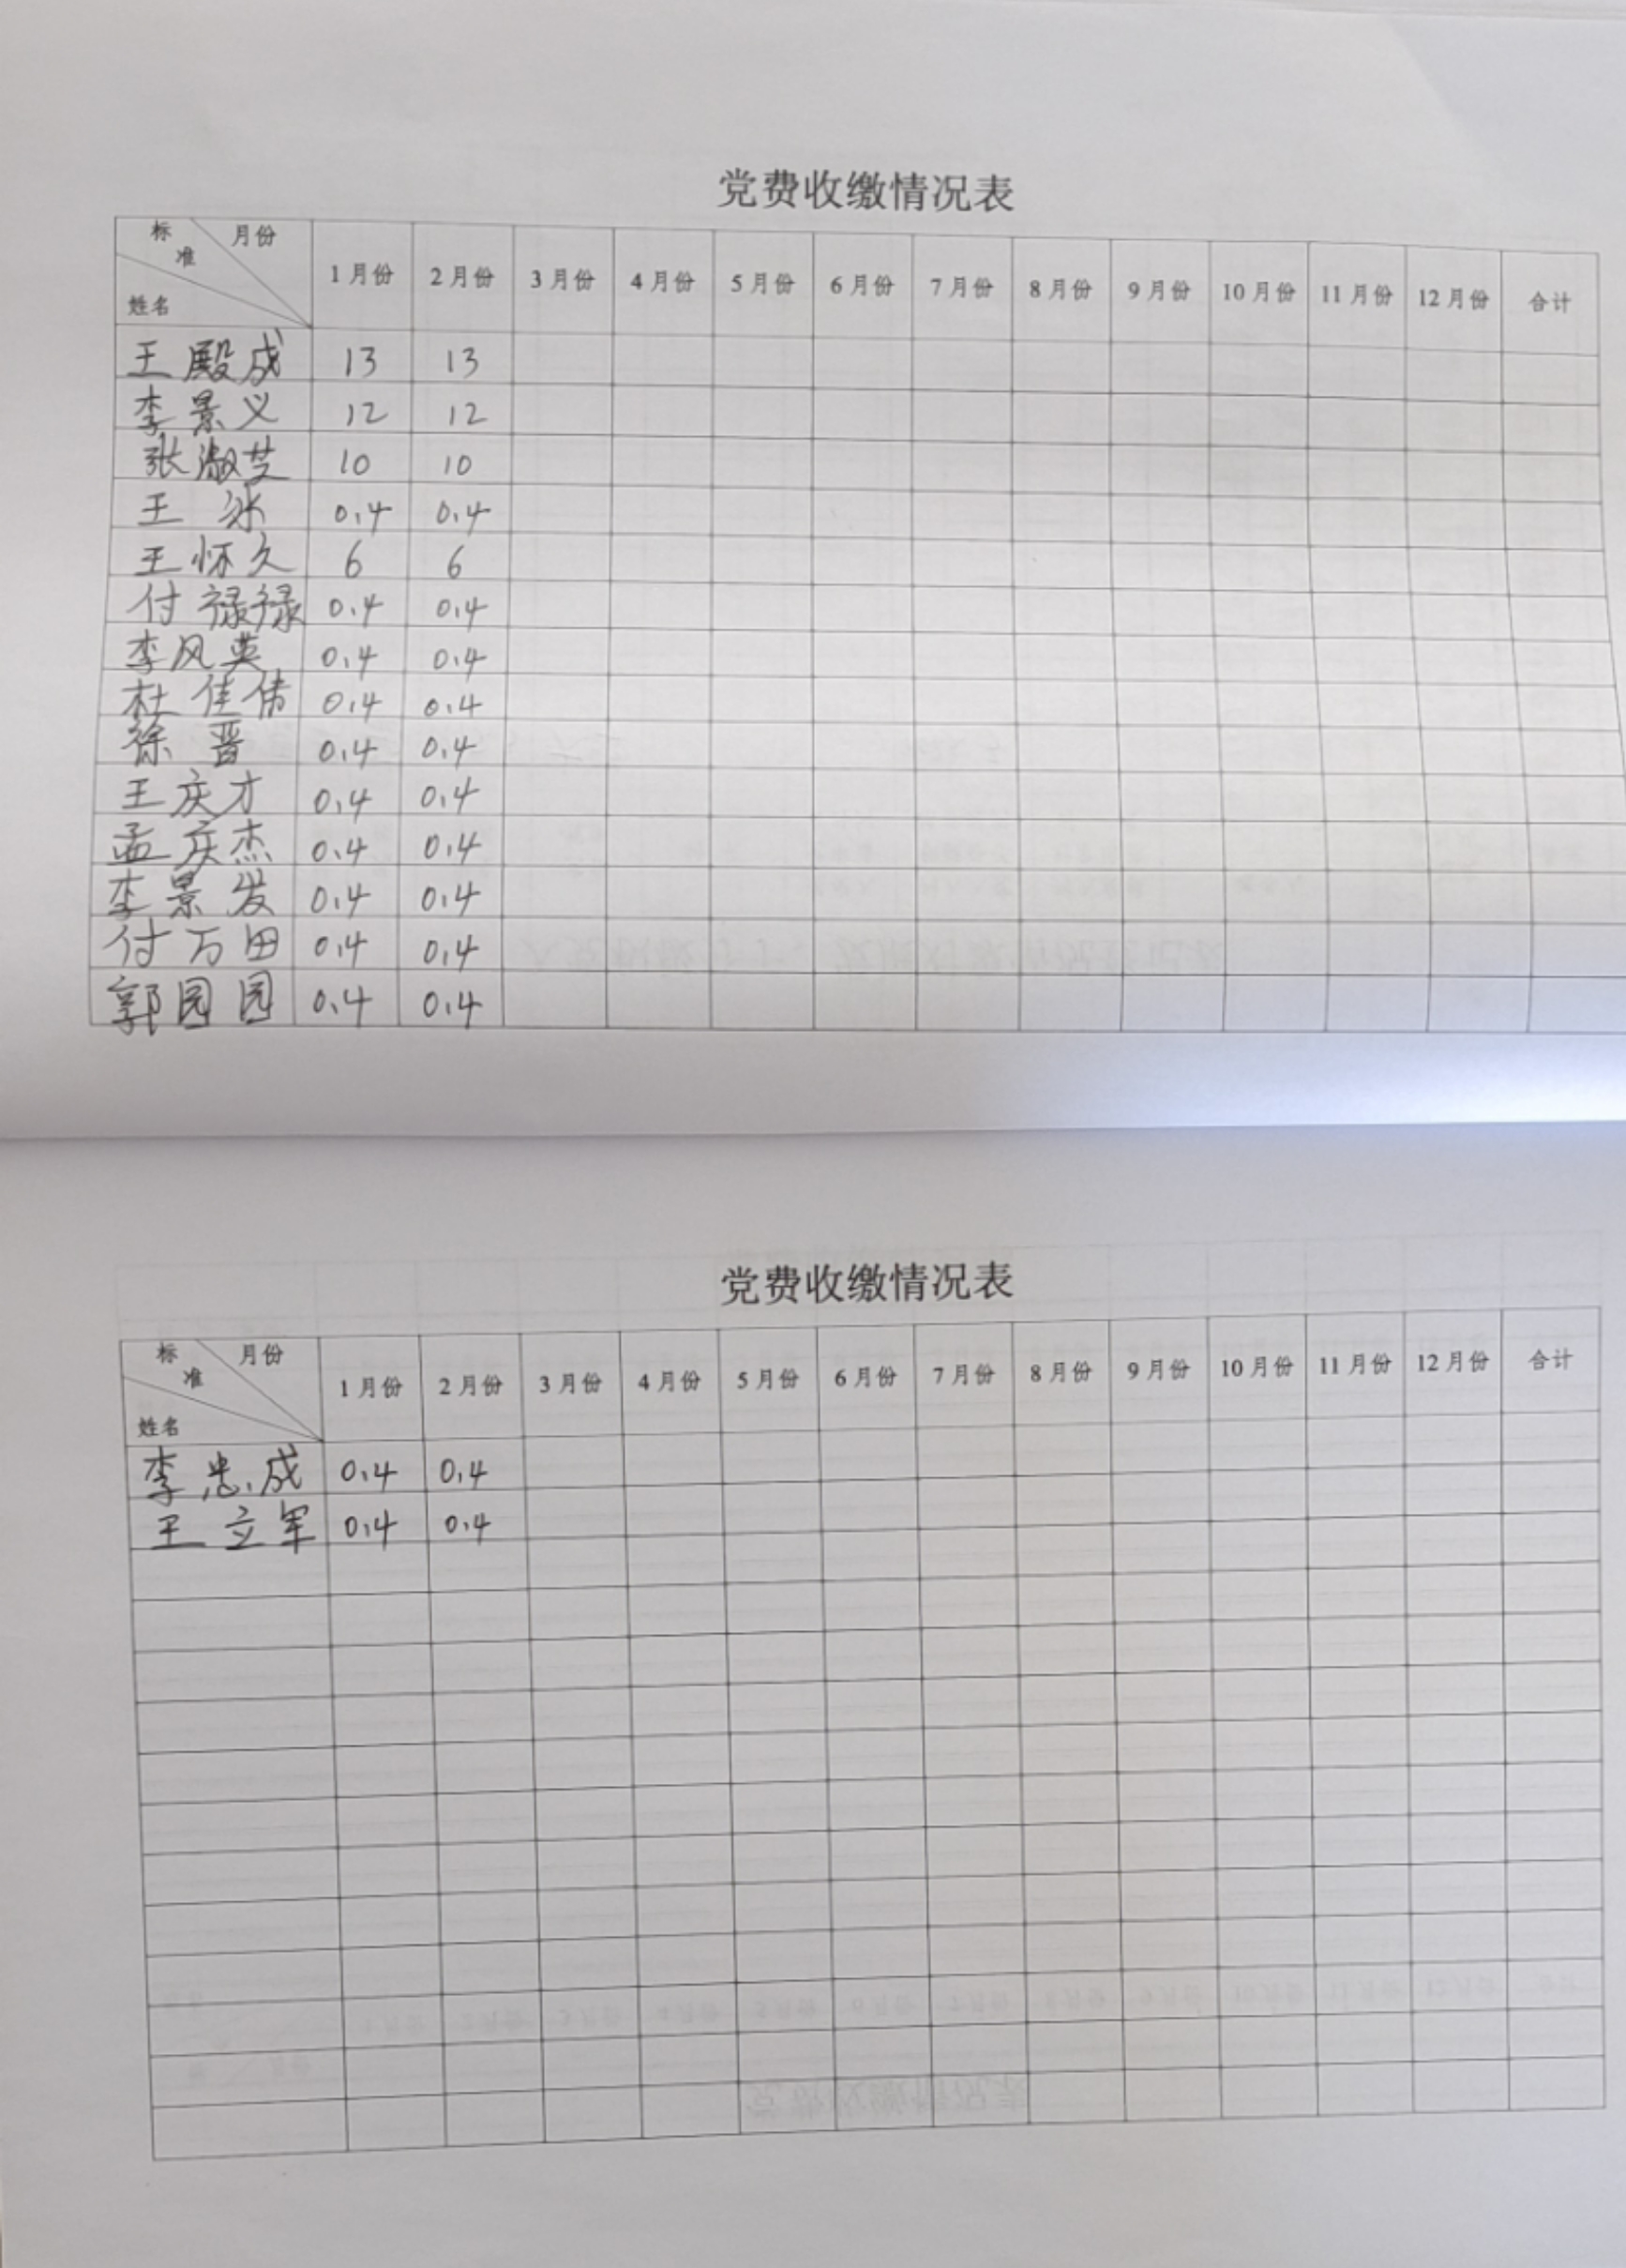 党费收缴情况表
标准 月份 姓名 1月份 2月份 3月份 4月份 5月份 6月份 7月份 8月份 9月份 10月份 11月份 12月份 合计
王殿成 13 13
李景义 12 12
张淑芝 10 10
王冰 0.4 0.4
王怀久 6 6
付禄禄 0.4 0.4
李风英 0.4 0.4
杜佳伟 0.4 0.4
徐晋 0.4 0.4
王庆才 0.4 0.4
孟庆杰 0.4 0.4
李景发 0.4 0.4
付万田 0.4 0.4
郭园园 0.4 0.4
党费收缴情况表
标准 月份 姓名 1月份 2月份 3月份 4月份 5月份 6月份 7月份 8月份 9月份 10月份 11月份 12月份 合计
李忠成 0.4 0.4
王立军 0.4 0.4